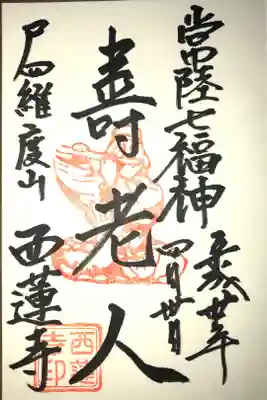 常陸七福神
平成廿年
四月卅日
壽老人
尸羅度山
西蓮寺
西蓮
寺印